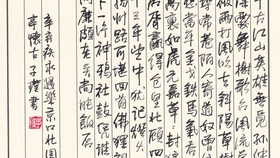 千古江山英雄無覓孫仲謀
處舞榭歌臺風流總
被雨打風吹去斜陽草樹
尋常巷陌人道寄奴曾住
想當年金戈鐵馬氣吞
萬里如虎元嘉草草封狼
居胥贏得倉皇北顧四
十三年望中猶記烽火
揚州路可堪回首佛狸祠
下一片神鴉社鼓憑誰
問廉頗老矣尚能飯否
辛棄疾永遇樂京口北固
亭懷古子璞書